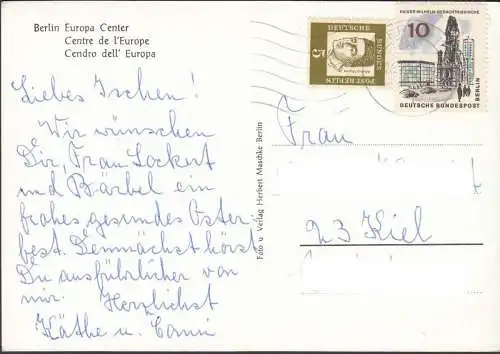 Berlin Europa Center
Centre de l'Europe
Cendro dell' Europa
Liebes Ischen!
Wir wünschen
Dir, Frau Lockert
und Bärbel ein
frohes gesundes Oster-
fest. Demnächst hörst
Du ausführlicher von
mir. Herzlichst
Käthe u.
Foto u Verlag Herbert Maschke Berlin
5
DEUTSCHE
BUNDES
POST BERLIN
KAISER-WILHELM-GEDÄCHTNISKIRCHE
10
BERLIN
DEUTSCHE BUNDESPOST
Frau
23 Kiel